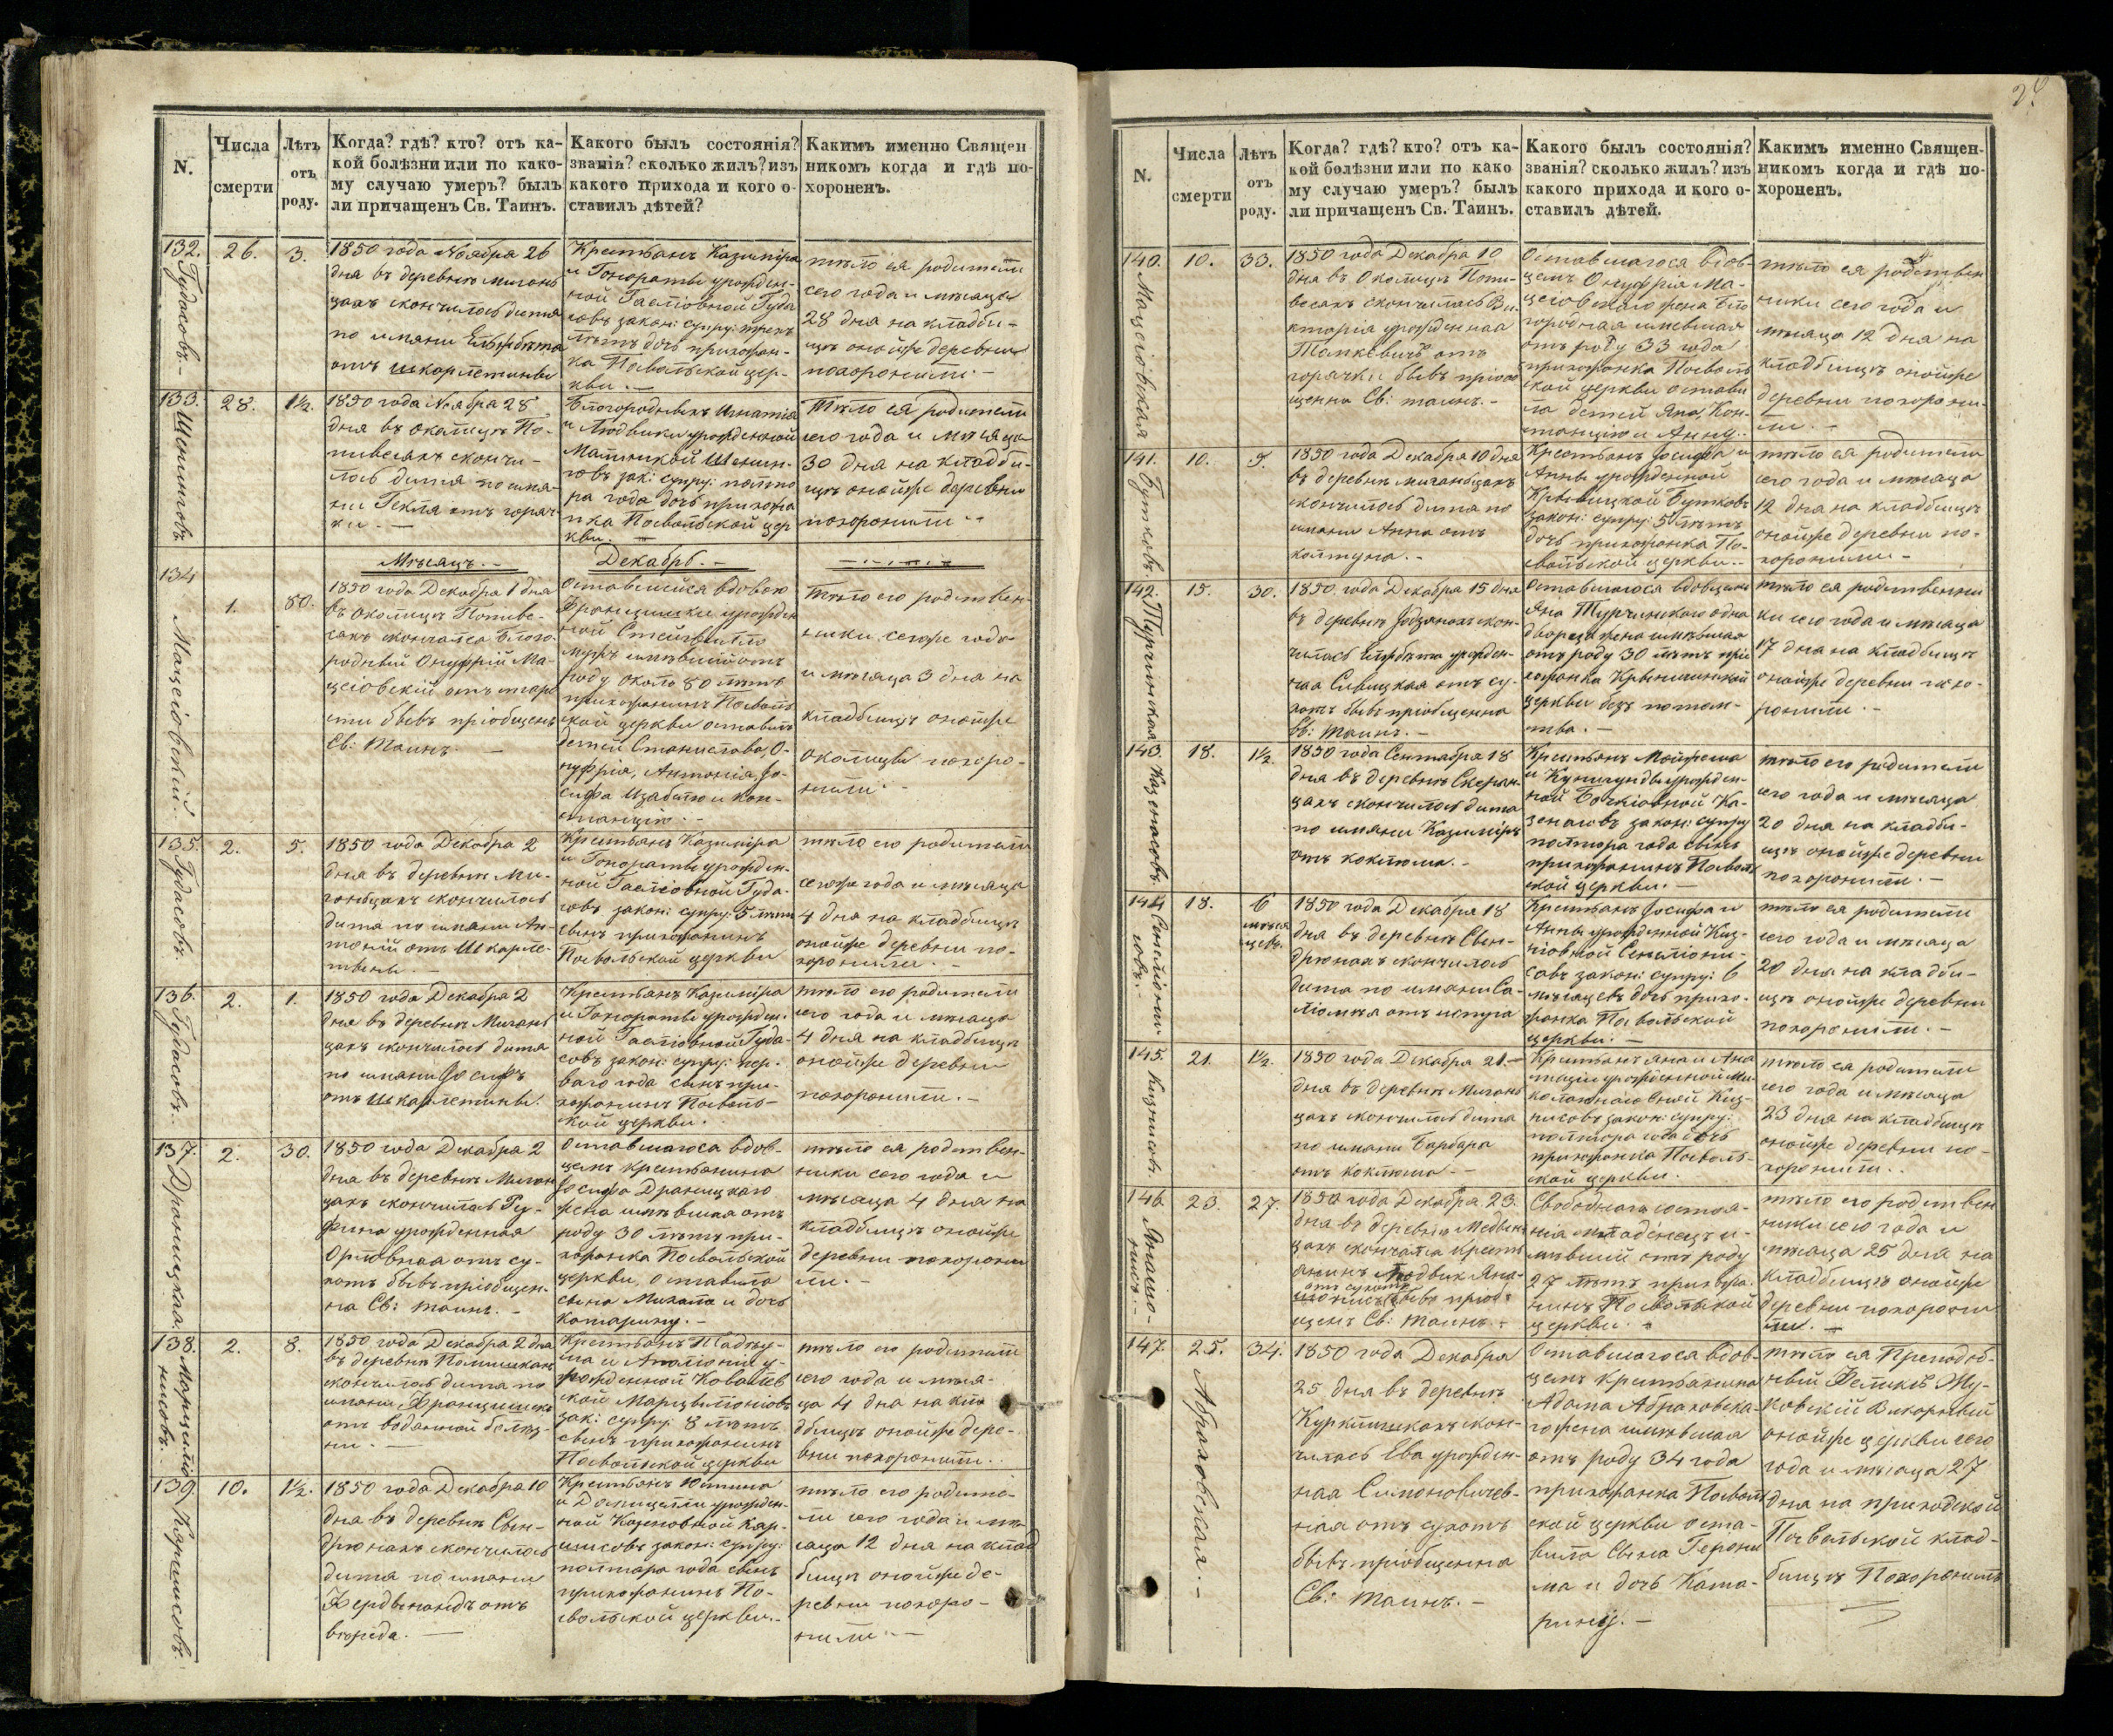 N.
Числа
смерти
Лѣтъ
отъ
роду.
Когда? гдѣ? кто? отъ ка-
кой болѣзни или по како-
му случаю умеръ? былъ
ли причащенъ Св. Таинъ.
Какого былъ состоянія?
званія? сколько жилъ? изъ
какого прихода и кого о-
ставилъ дѣтей?
Какимъ именно Священ
никомъ когда и гдѣ по-
хороненъ.
132.
Гудасовъ. -
26.
3.
1850 года Ноября 26
дня въ деревнѣ Миганъ
цахъ скончилось дитя
по имяни Ельжбѣта
отъ шкарлетины
Крестьянъ Казиміра
и Гонораты урожден-
ной Гасліовной Гуда
совъ закон: супру: трехъ
лѣтъ дочь прихожан-
ка Посвольской цер-
кви. -
тѣло ея родители
сего года и мѣсяца
28 дня на кладби-
щѣ онойже деревни
похоронили. -
133.
28.
1½.
1850 года Ноября 28
дня въ околицѣ По-
пивесахъ скончи-
лось дитя по имя-
ни Текля отъ горяч-
ки. -
Благородныхъ Игнатія
и Людвики урожденной
зак: супру: полто
ра года дочь прихожа
нка Посвольской цер
кви. -
Тѣло ея родители
сего года и мѣсяца
30 дня на кладби-
щѣ онойже деревни
похоронили. -
Мѣсяцъ. -
Декабрь. -
134
Мацеіовскій. -
1.
80.
1850 года Декабря 1 дня
въ околицѣ Попиве-
сахъ скончался Благо-
родный Онуфрій Ма-
цеіовскій отъ старо
сти бывъ пріобщенъ
Св: Таинъ. -
Оставшейся вдовою
Францишки урожден
ной
мужъ имѣвшій отъ
роду около 80 лѣтъ
прихожанинъ Посволь
ской церкви оставилъ
детей Станислава, О-
нуфрія, Антонія, Іо-
сифа Изабелю и Кон-
станцію. -
Тѣло его родствен-
ники сегоже года
и мѣсяца 3 дня на
кладбищѣ онойже
околицы похоро-
нили. -
135.
Гудасовъ.
2.
5.
1850 года Декабря 2
дня въ деревнѣ Ми-
ганьцахъ скончилось
дитя по имяни Ан-
тоній отъ Шкарле-
тины. -
Крестьянъ Казиміра
и Гонораты урожден-
ной Гасліовной Гуда-
совъ закон: супру: 5 лѣтъ
сынъ прихожанинъ
Посвольской церкви
тѣло его родители
сегоже года и мѣсяца
4 дня на кладбищѣ
онойже деревни по-
хоронили. -
136.
Гудасовъ.
2.
1.
1850 года Декабря 2
дня въ деревнѣ Миганъ
цахъ скончилось дитя
по имяни Іосифъ
отъ Шкарлетины.
Крестьянъ Казиміра
и Гонораты урожден-
ной Гасліовной Гуда-
совъ закон: супру: пер-
ваго года сынъ при-
хожанинъ Посволь-
кой церкви.
тѣло его родители
сего года и мѣсяца
4 дня на кладбищѣ
онойже деревни
похоронили. -
137.
Драницкая.
2.
30.
1850 года Декабря 2
дня въ деревнѣ Миган
цахъ скончилась Ру-
фина урожденная
Орловная отъ су-
хотъ бывъ пріобщен-
на Св: таинъ. -
Оставшагося вдов-
цемъ крестьянина
Іосифа Драницкаго
жена имѣвшая отъ
роду 30 лѣтъ при-
хожанка Посвольской
церкви, оставила
сына Михала и дочь
Катарину. -
тѣло ея родствен-
ники сего года и
мѣсяца 4 дня на
кладбищѣ онойже
деревни похорони
ли. -
138.
2.
8.
1850 года Декабря 2 дня
въ деревнѣ
скончилось дитя по
имяни Францишекъ
отъ водянной болѣз-
ни. -
Крестьянъ
и Аполіоніи у-
рожденной
зак: супру: 8 лѣтъ
сынъ прихожанинъ
Посвольской церкви
тѣло его родители
сего года и мѣся-
ца 4 дня на кла
дбищѣ онойже дере-
вни похоронили.
139.
10.
1½.
1850 года Декабря 10
дня въ деревнѣ Свен-
дрюнахъ скончилось
дитя по имяни
Фердынандъ отъ
вгрѣда. -
Крестьянъ
и урожден-
ной
закон: супру:
полтора года сынъ
прихожанинъ По-
свольской церкви. -
тѣло его родите-
ли сего года и мѣ-
сяца 12 дня на клад
бищѣ онойже де-
ревни похоро-
нили. -
N.
Числа
смерти
Лѣтъ
отъ
роду.
Когда? гдѣ? кто? отъ ка-
кой болѣзни или по како
му случаю умеръ? былъ
ли причащенъ Св. Таинъ.
Какого былъ состоянія?
званія? сколько жилъ? изъ
какого прихода и кого о-
ставилъ дѣтей.
Какимъ именно Священ-
никомъ когда и гдѣ по-
хороненъ.
140.
Мацеіовская
10.
33.
1850 года Декабря 10
дня въ Околицѣ Попи-
весахъ скончилась Ви-
кторія урожденная
Томкевичъ отъ
горячки бывъ пріоб
щенна Св: таинъ. -
Оставшагося вдов-
цемъ Онуфрія Ма-
цеіовскаго жена бла
городная имевшая
отъ роду 33 года
прихожанка Посволь
ской церкви остави
ла детей Яна, Кон-
станцію и Анну. -
тѣло ея родствен
ники сего года и
мѣсяца 12 дня на
кладбищѣ онойже
деревни похорони-
ли. -
141.
Бутковъ
10.
5.
1850 года Декабря 10 дня
въ деревнѣ Миганьцахъ
скончилось дитя по
имяни Анна отъ
колтуна. -
Крестьянъ Іосифа и
Анны урожденной
Крыницкой Бутковъ
закон: супру: 5 лѣтъ
дочь прихожанка По-
свольской церкви. -
тѣло ея родители
сего года и мѣсяца
12 дня на кладбищѣ
онойже деревни по-
хоронили -
142.
Турчинская
15.
30.
1850 года Декабря 15 дня
въ деревнѣ скон-
чилась Ельжбѣта урожден-
ная Савицкая отъ су-
хотъ бывъ пріобщенна
Св: Таинъ. -
Оставшагося вдовцемъ
Яна Турчинскаго одно
дворца жена имѣвшая
отъ роду 30 лѣтъ при
хожанка
церкви безъ потом-
ства. -
тѣло ея родственни
ки сего года и мѣсяца
17 дня на кладбищѣ
онойже деревни похо-
ронили. -
143.
Казенасовъ.
18.
1½.
1850 года Сентября 18
дня въ деревнѣ
цахъ скончилось дитя
по имяни Казиміръ
отъ коклюша. -
Крестьянъ
и Кунигунды урожден-
ной Ка-
зенасовъ закон: супру
полтора года сынъ
прихожанинъ Посволь
ской церкви. -
тѣло его родители
сего года и мѣсяца
20 дня на кладби-
щѣ онойже деревни
похоронили. -
144
18.
6
мѣся
цевъ.
1850 года Декабря 18
дня въ деревнѣ Свен-
дрюнахъ скончилось
дитя по имяни Са-
ліомея отъ испуга
Крестьянъ Іосифа и
Анны урожденной
закон: супру: 6
мѣсяцевъ дочь прихо-
жанка Посвольской
церкви. -
тѣло ея родители
сего года и мѣсяца
20 дня на кладби-
щѣ онойже деревни
похоронили. -
145.
21.
1½.
1850 года Декабря 21 -
дня въ деревнѣ Миганъ
цахъ скончилось дитя
по имяни Барбара
отъ коклюша - -
Крестьянъ Яна и Ана
стасіи урожденной
закон: супру:
полтора года дочь
прихожанка Посволь-
ской церкви.
тѣло ея родители
сего года и мѣсяца
23 дня на кладбищѣ
онойже деревни по-
хоронили. .
146.
23.
27.
1850 года Декабря 23
дня въ деревнѣ
цахъ скончался кресть
янинъ Людвик
отъ сухотъ
бывъ пріоб-
щенъ Св: таинъ. -
Свободнаго состоя-
нія младенецъ и-
мѣвшій отъ роду
27 лѣтъ прихожа-
нинъ Посвольской
церкви. -
тѣло его родствен
ники сего года и
мѣсяца 25 дня на
кладбищѣ онойже
деревни похорони
ли. -
147.
Абраховская. -
25.
34.
1850 года Декабря
25 дня въ деревнѣ
Куркишкахъ скон-
чилась Ева урожден-
ная Симоновичев-
ная отъ сухотъ
бывъ пріобщенна
Св: Таинъ. -
Оставшагося вдов-
цемъ крестьянина
Адама Абраховска-
го жена имѣвшая
отъ роду 34 года
прихожанка Посволь
ской церкви оста-
вила сына Герони
ма и дочь Ката-
рину. -
тѣло ея Преподоб-
ный Феликсъ Жу-
ковскій Викарный
онойже церкви сего
года и мѣсяца 27
дня на приходской
Посвольской клад-
бищѣ Похоронилъ